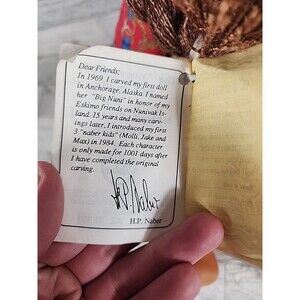 Dear Friends:
In 1969 I carved my first doll
in Anchorage, Alaska. I named
her "Big Nuni" in honor of my
Eskimo friends on Nunivak Is-
land. 15 years and many carv-
ings later, I introduced my first
3 "naber kids" (Molli, Jake and
Max) in 1984. Each character
is only made for 1001 days after
I have completed the original
carving.
H.P. Naber
H.P. Naber